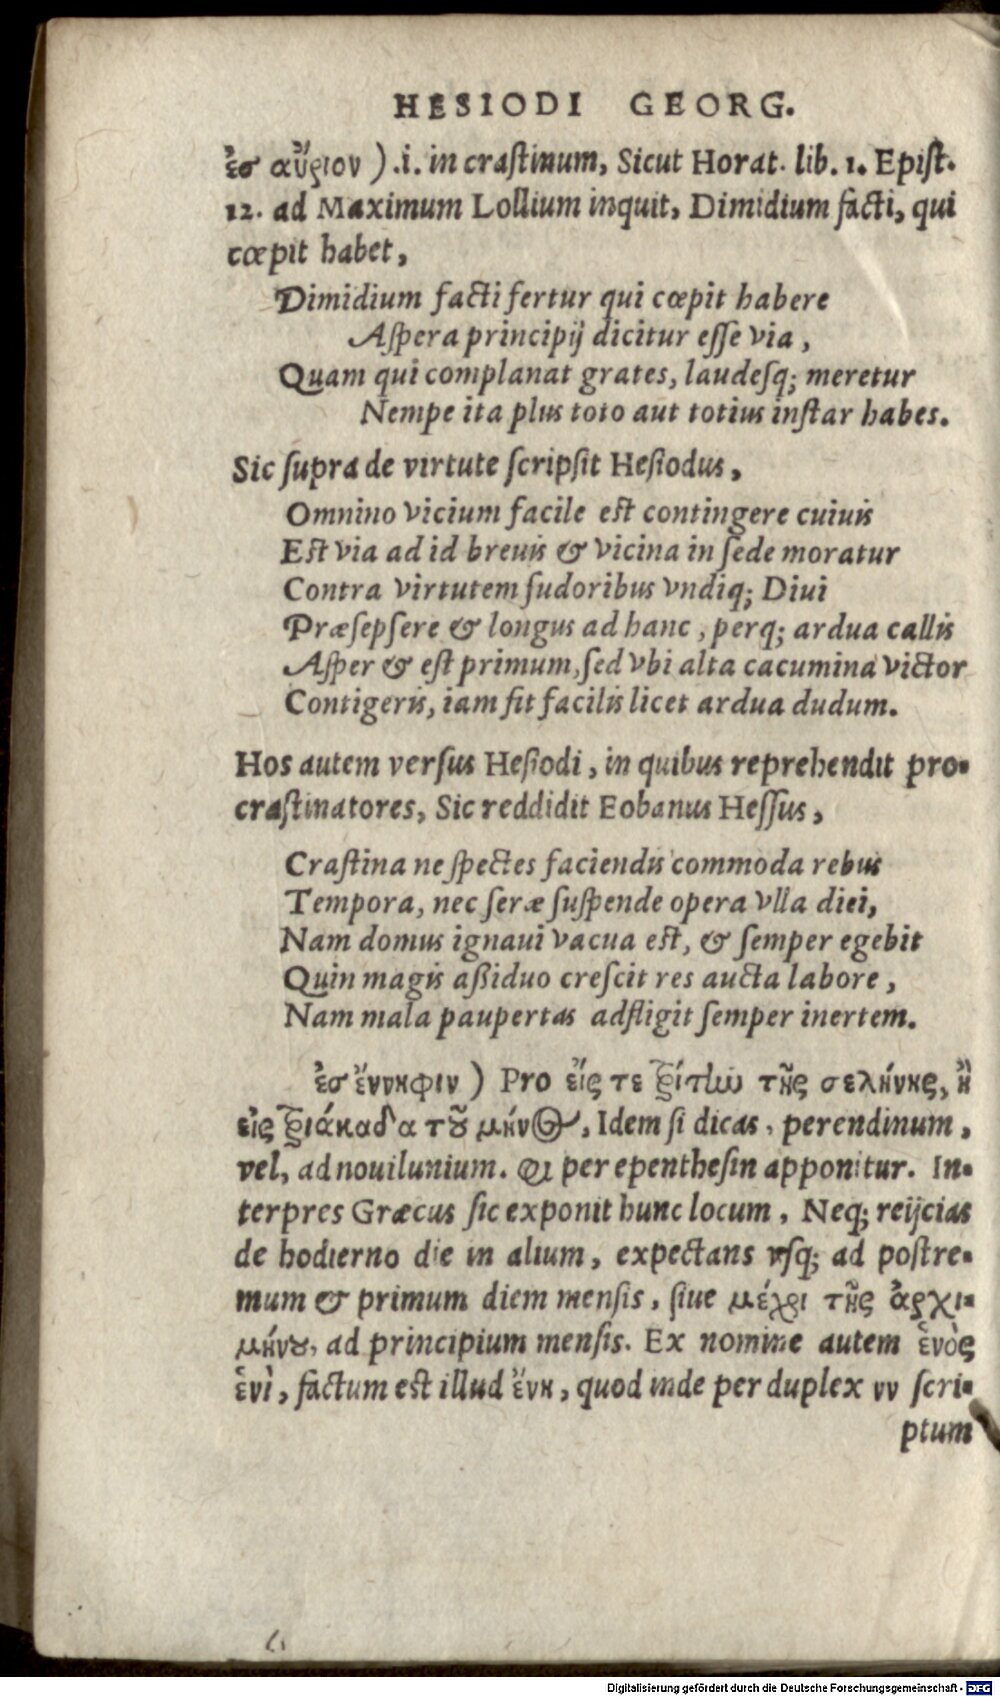 HESIODI GEORG.
ἐσ αὔριον ) .i. in craſtinum, Sicut Horat. lib. 1. Epiſt.
12. ad Maximum Lollium inquit, Dimidium facti, qui
cœpit habet,
Dimidium facti fertur qui cœpit habere
Aſpera principij dicitur eſſe via,
Quam qui complanat grates, laudeſq; meretur
Nempe ita plus toto aut totius inſtar habes.
Sic ſupra de virtute ſcripſit Heſiodus,
Omnino vicium facile eſt contingere cuiuis
Eſt via ad id breuis & vicina in ſede moratur
Contra virtutem ſudoribus vndiq; Diui
Præſepſere & longus ad hanc, perq; ardua callis
Aſper & eſt primum, ſed vbi alta cacumina victor
Contigeris, iam fit facilis licet ardua dudum.
Hos autem verſus Heſiodi, in quibus reprehendit pro-
craſtinatores, Sic reddidit Eobanus Heſſus,
Craſtina ne ſpectes faciendis commoda rebus
Tempora, nec ſeræ ſuſpende opera vlla diei,
Nam domus ignaui vacua eſt, & ſemper egebit
Quin magis aßiduo creſcit res aucta labore,
Nam mala paupertas adfligit ſemper inertem.
ἐσ ἔννηφιν ) Pro εἴς τε τρίτην τῆς σελήνης, ἢ
εἰς τριάκαδα τοῦ μήνος, Idem ſi dicas, perendinum,
vel, ad nouilunium. φι per epentheſin apponitur. In-
terpres Græcus ſic exponit hunc locum, Neq; reijcias
de hodierno die in alium, expectans vſq; ad poſtre-
mum & primum diem menſis, ſiue μέχρι τῆς ἀρχι-
μήνου, ad principium menſis. Ex nomine autem ἑνὸς
ἑνὶ, factum eſt illud ἔνη, quod inde per duplex νν ſcri-
ptum
Digitalisierung gefördert durch die Deutsche Forschungsgemeinschaft - DFG